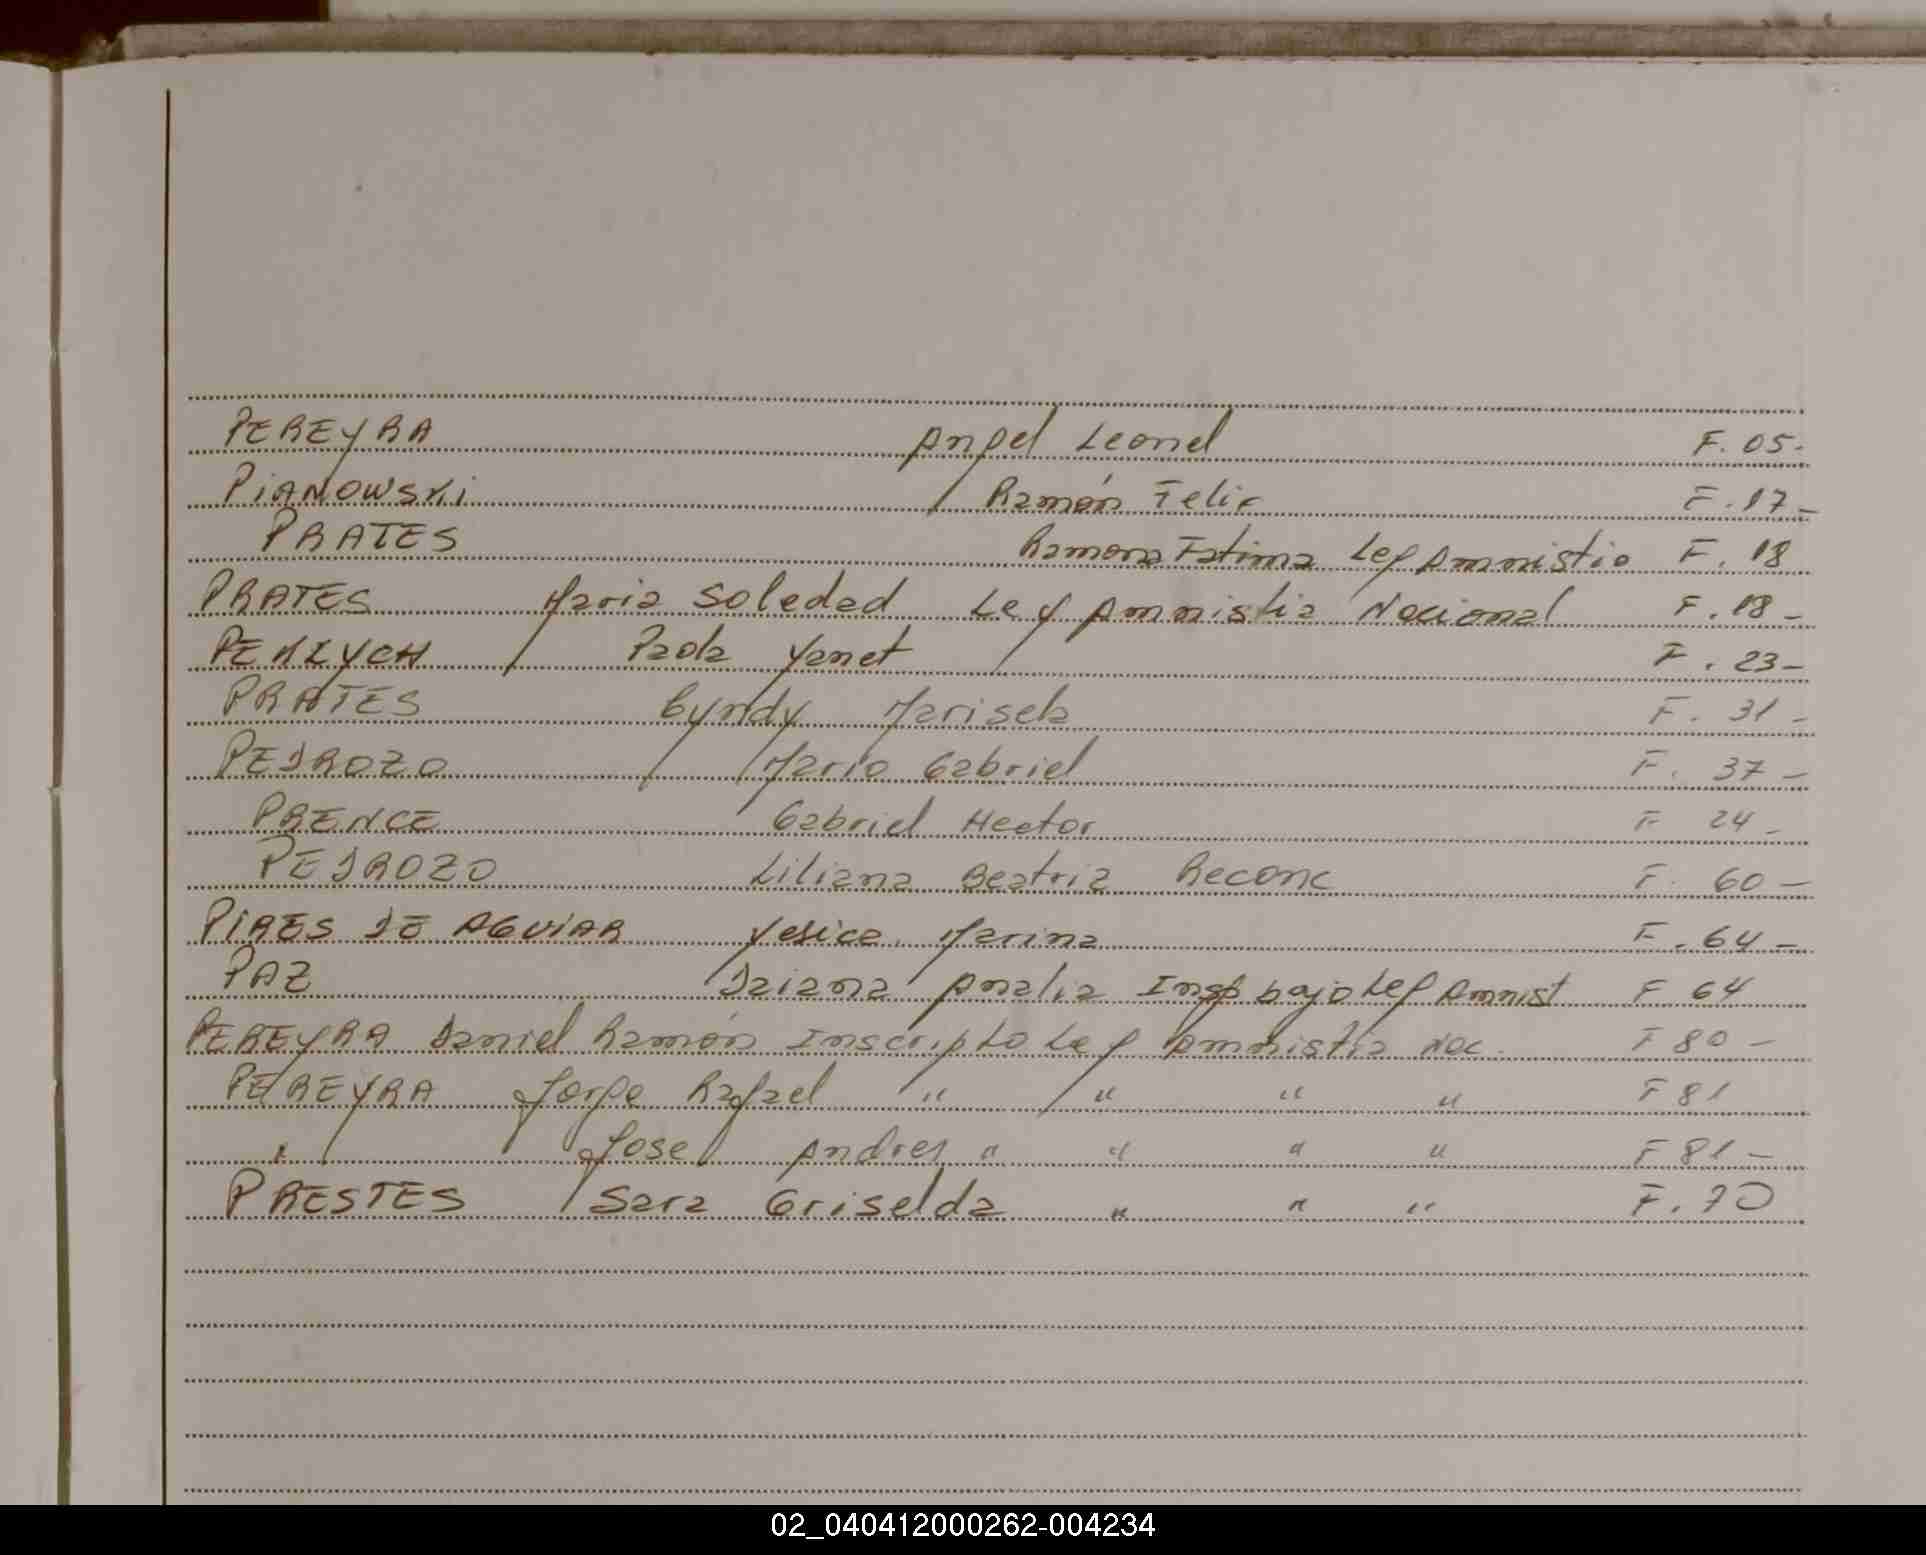 PEREYRA Angel Leonel F. 05-
PiANOWSKi Ramón Felix F. 17-
PRATES Ramona Fatima Ley Amnistia F. 18
PRATES Maria Soledad Ley Amnistia Nacional F. 18-
Paola Yanet F. 23-
PRATES Cyndy Marisela F. 31-
PEDROZO Mario Gabriel F. 37-
PRENCE Gabriel Hector F 24-
PEDROZO Liliana Beatriz Reconc F. 60-
PiRES DE AGUiAR Yesica Marina F. 64-
PAZ Daiana Analia Insp bajo Ley Amnist F 64
PEREYRA Daniel Ramón Inscripto Ley Amnistia Nac. F 80-
PEREYRA Jorge Rafael " " " " F 81
" Jose Andres " " " " F 81-
PRESTES Sara Griselda " " " F. 70
02_040412000262-004234